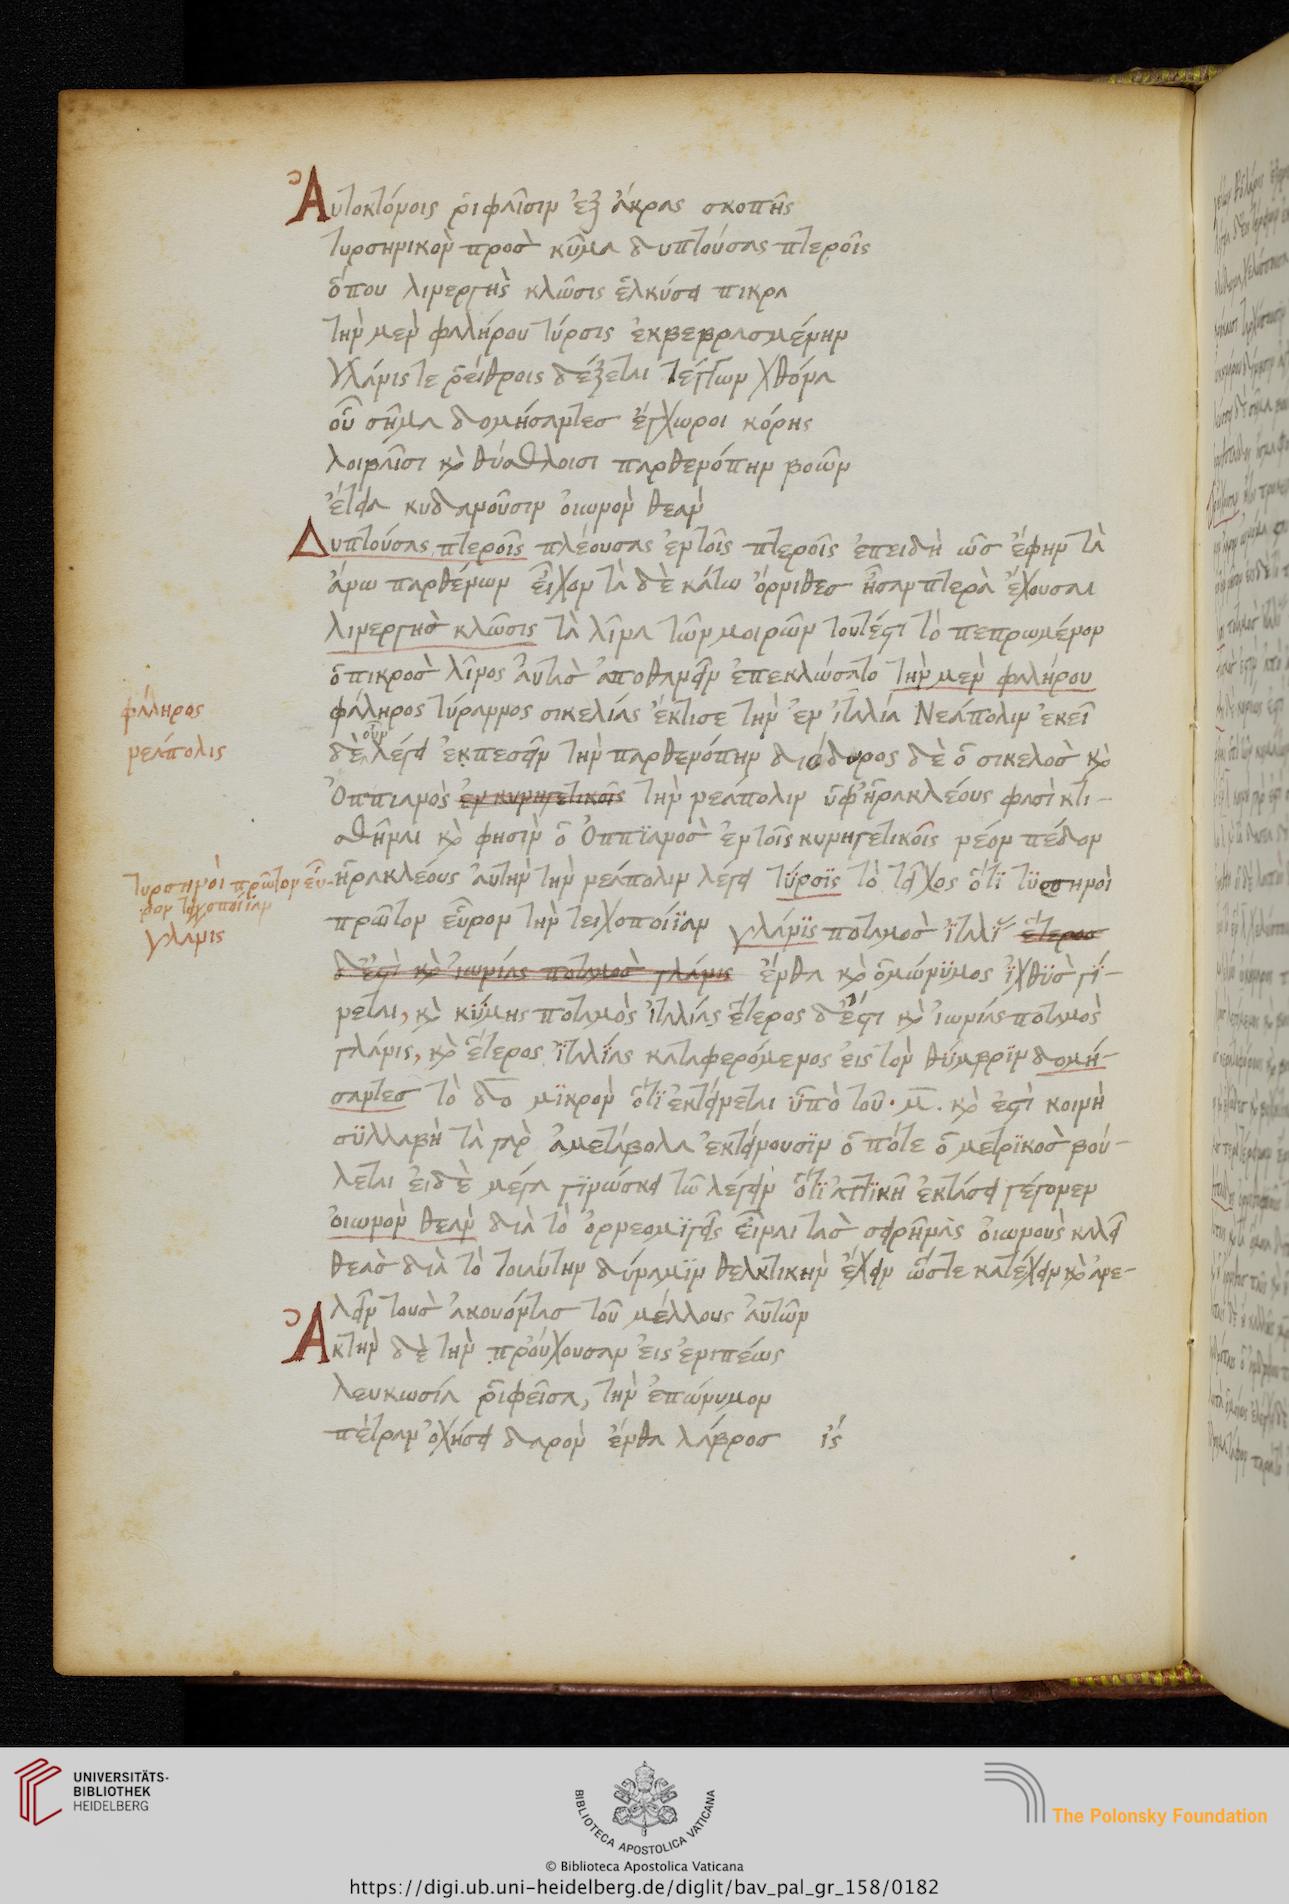 Αὐτοκτόνοις ῥιφαῖσιν ἐξ ἄκρας σκοπῆς
τυρσηνικὸν προσ κῦμα δυπτούσας πτεροῖς
ὅπου λινεργὴς κλῶσις ἑλκύσει πικρὰ
τὴν μὲν φαλήρου τύρσις ἐκβεβρασμένην
γλάνις τε ῥείθροις δέξεται τέγγων χθόνα
οὗ σῆμα δομήσαντεσ ἔγχωροι κόρης
λοιβαῖσι καὶ θύσθλοισι παρθενόπην βοῶν
ἔτεια κυδανοῦσιν οἰωνὸν θεὰν
Δυπτούσας πτεροῖς πλέουσας ἐν τοῖς πτεροῖς ἐπειδὴ ὡσ ἔφην τὰ
ἄνω παρθένων εἶχον τὰ δὲ κάτω ὄρνιθεσ ἦσαν πτερὰ ἔχουσαι
λινεργὴσ κλῶσις τὰ λῖνα τῶν μοιρῶν τουτέστι τὸ πεπρωμένον
ὁ πικροσ λῖνος αὐτὰσ ἀποθανεῖν ἐπεκλώσατο τὴν μὲν φαλήρου
φάληρος
φάληρος τύραννος σικελίας ἔκτισε τὴν ἐν ἰταλία Νεάπολιν ἐκεῖ
νεάπολις
δὲ οὖν λέγει ἐκπεσεῖν τὴν παρθενόπην διόδωρος δὲ ὁ σικελοσ καὶ
Ὀππιανὸς ἐν κυνηγετικοῖς τὴν νεάπολιν ὑφ' ἡρακλέους φασὶ κτι-
σθῆναι καὶ φησὶν ὁ Ὀππϊανοσ ἐν τοῖς κυνηγετικοῖς νέον πέδον
τυρσηνοὶ πρῶτον εὗ-
ρον τειχοποιΐαν
ἡρακλέους αὐτὴν τὴν νεάπολιν λέγει τύρσϊς τὸ τεῖχος ὅτϊ τϋρσηνοὶ
γλάνις
πρῶτον εὗρον τὴν τειχοποιΐαν γλάνϊς ποταμοσ ἰταλί ἕτεροσ
δέ ἐστὶ καὶ ἰωνίας ποταμὸσ γλάνις ἔνθα καὶ ὁμώνϋμος ἰχθϋσ γί-
νεται, καὶ κύμης ποταμὸς ἰταλίας ἕτερος δέ ἐστι καὶ ἰωνίας ποταμὸς
γλάνις, καὶ ἕτερος ἰταλίας καταφερόμενος εἰς τὸν θύμβρϊν δομή-
σαντεσ τὸ δο μϊκρὸν ὅτϊ ἐκτείνεται ὑπὸ τοῦ· μ. καὶ ἐστὶ κοινὴ
σϋλλαβὴ τὰ γὰρ ἀμετάβολα ἐκτείνουσϊν ὁπότε ὁ μετρϊκοσ βού-
λεται εἰ δὲ μέγα γϊνώσκει τῶ λέγειν ὅτϊ ἀττϊκῆ ἐκτάσει γέγονεν
οἰωνὸν θεὰν διὰ τὸ ὀρνεομϊγεῖς εἶναι τὰσ σειρῆνας οἰωνοὺς καλεῖ
θεὰσ διὰ τὸ τοιαύτην δύναμϊν θελκτικὴν ἔχειν ὥστε κατέχειν καὶ ἀνε-
λεῖν τοὺσ ἀκουόντασ τοῦ μέλλους αὐτῶν
Ἀκτὴν δὲ τὴν προὔχουσαν εἰς ἐνιπέως
λευκωσία ῥιφεῖσα, τὴν ἐπώνυμον
πέτραν ὀχήσει δαρὸν ἔνθα λάβροσ ἴς
UNIVERSITÄTS-
BIBLIOTHEK
HEIDELBERG
BIBLIOTHECA APOSTOLICA VATICANA
The Polonsky Foundation
© Biblioteca Apostolica Vaticana
https://digi.ub.uni-heidelberg.de/diglit/bav_pal_gr_158/0182